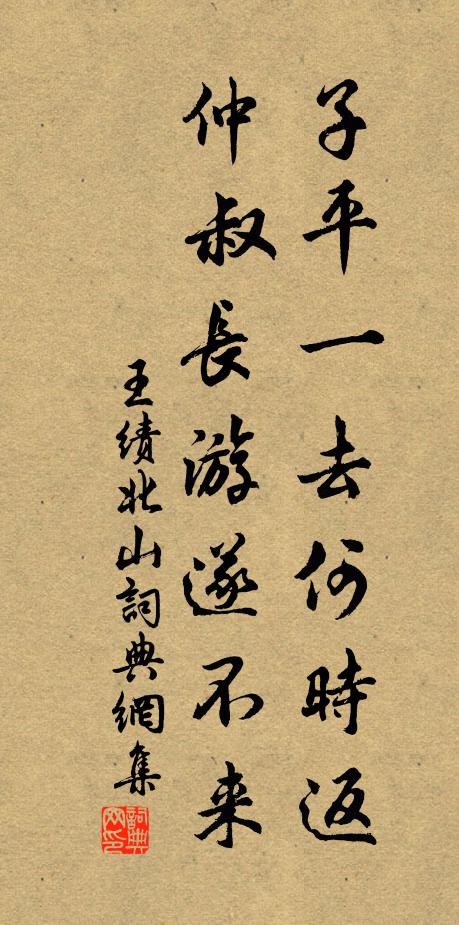 子平一去何時返
仲叔長游遂不来
王績北山詞典網集
詞典网印